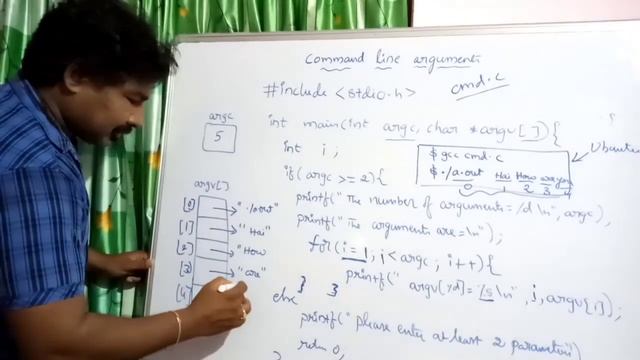 Command line arguments
cmd.c
#include <stdio.h>
argc
5
int main(int argc, char *argv[]){
int i;
Ubuntu
$ gcc cmd.c
$ ./a.out Hai How are you
0 1 2 3 4
if(argc >= 2){
argv[]
printf("The number of arguments=%d\n", argc);
printf("The arguments are=\n");
for(i=1; i<argc; i++){
printf("argv[%d]=%s\n", i, argv[i]);
} }
[0] "./a.out"
[1] "Hai"
[2] "How"
[3] "are"
[4]
else
printf("please enter at least 2 parameters")
return 0;
}